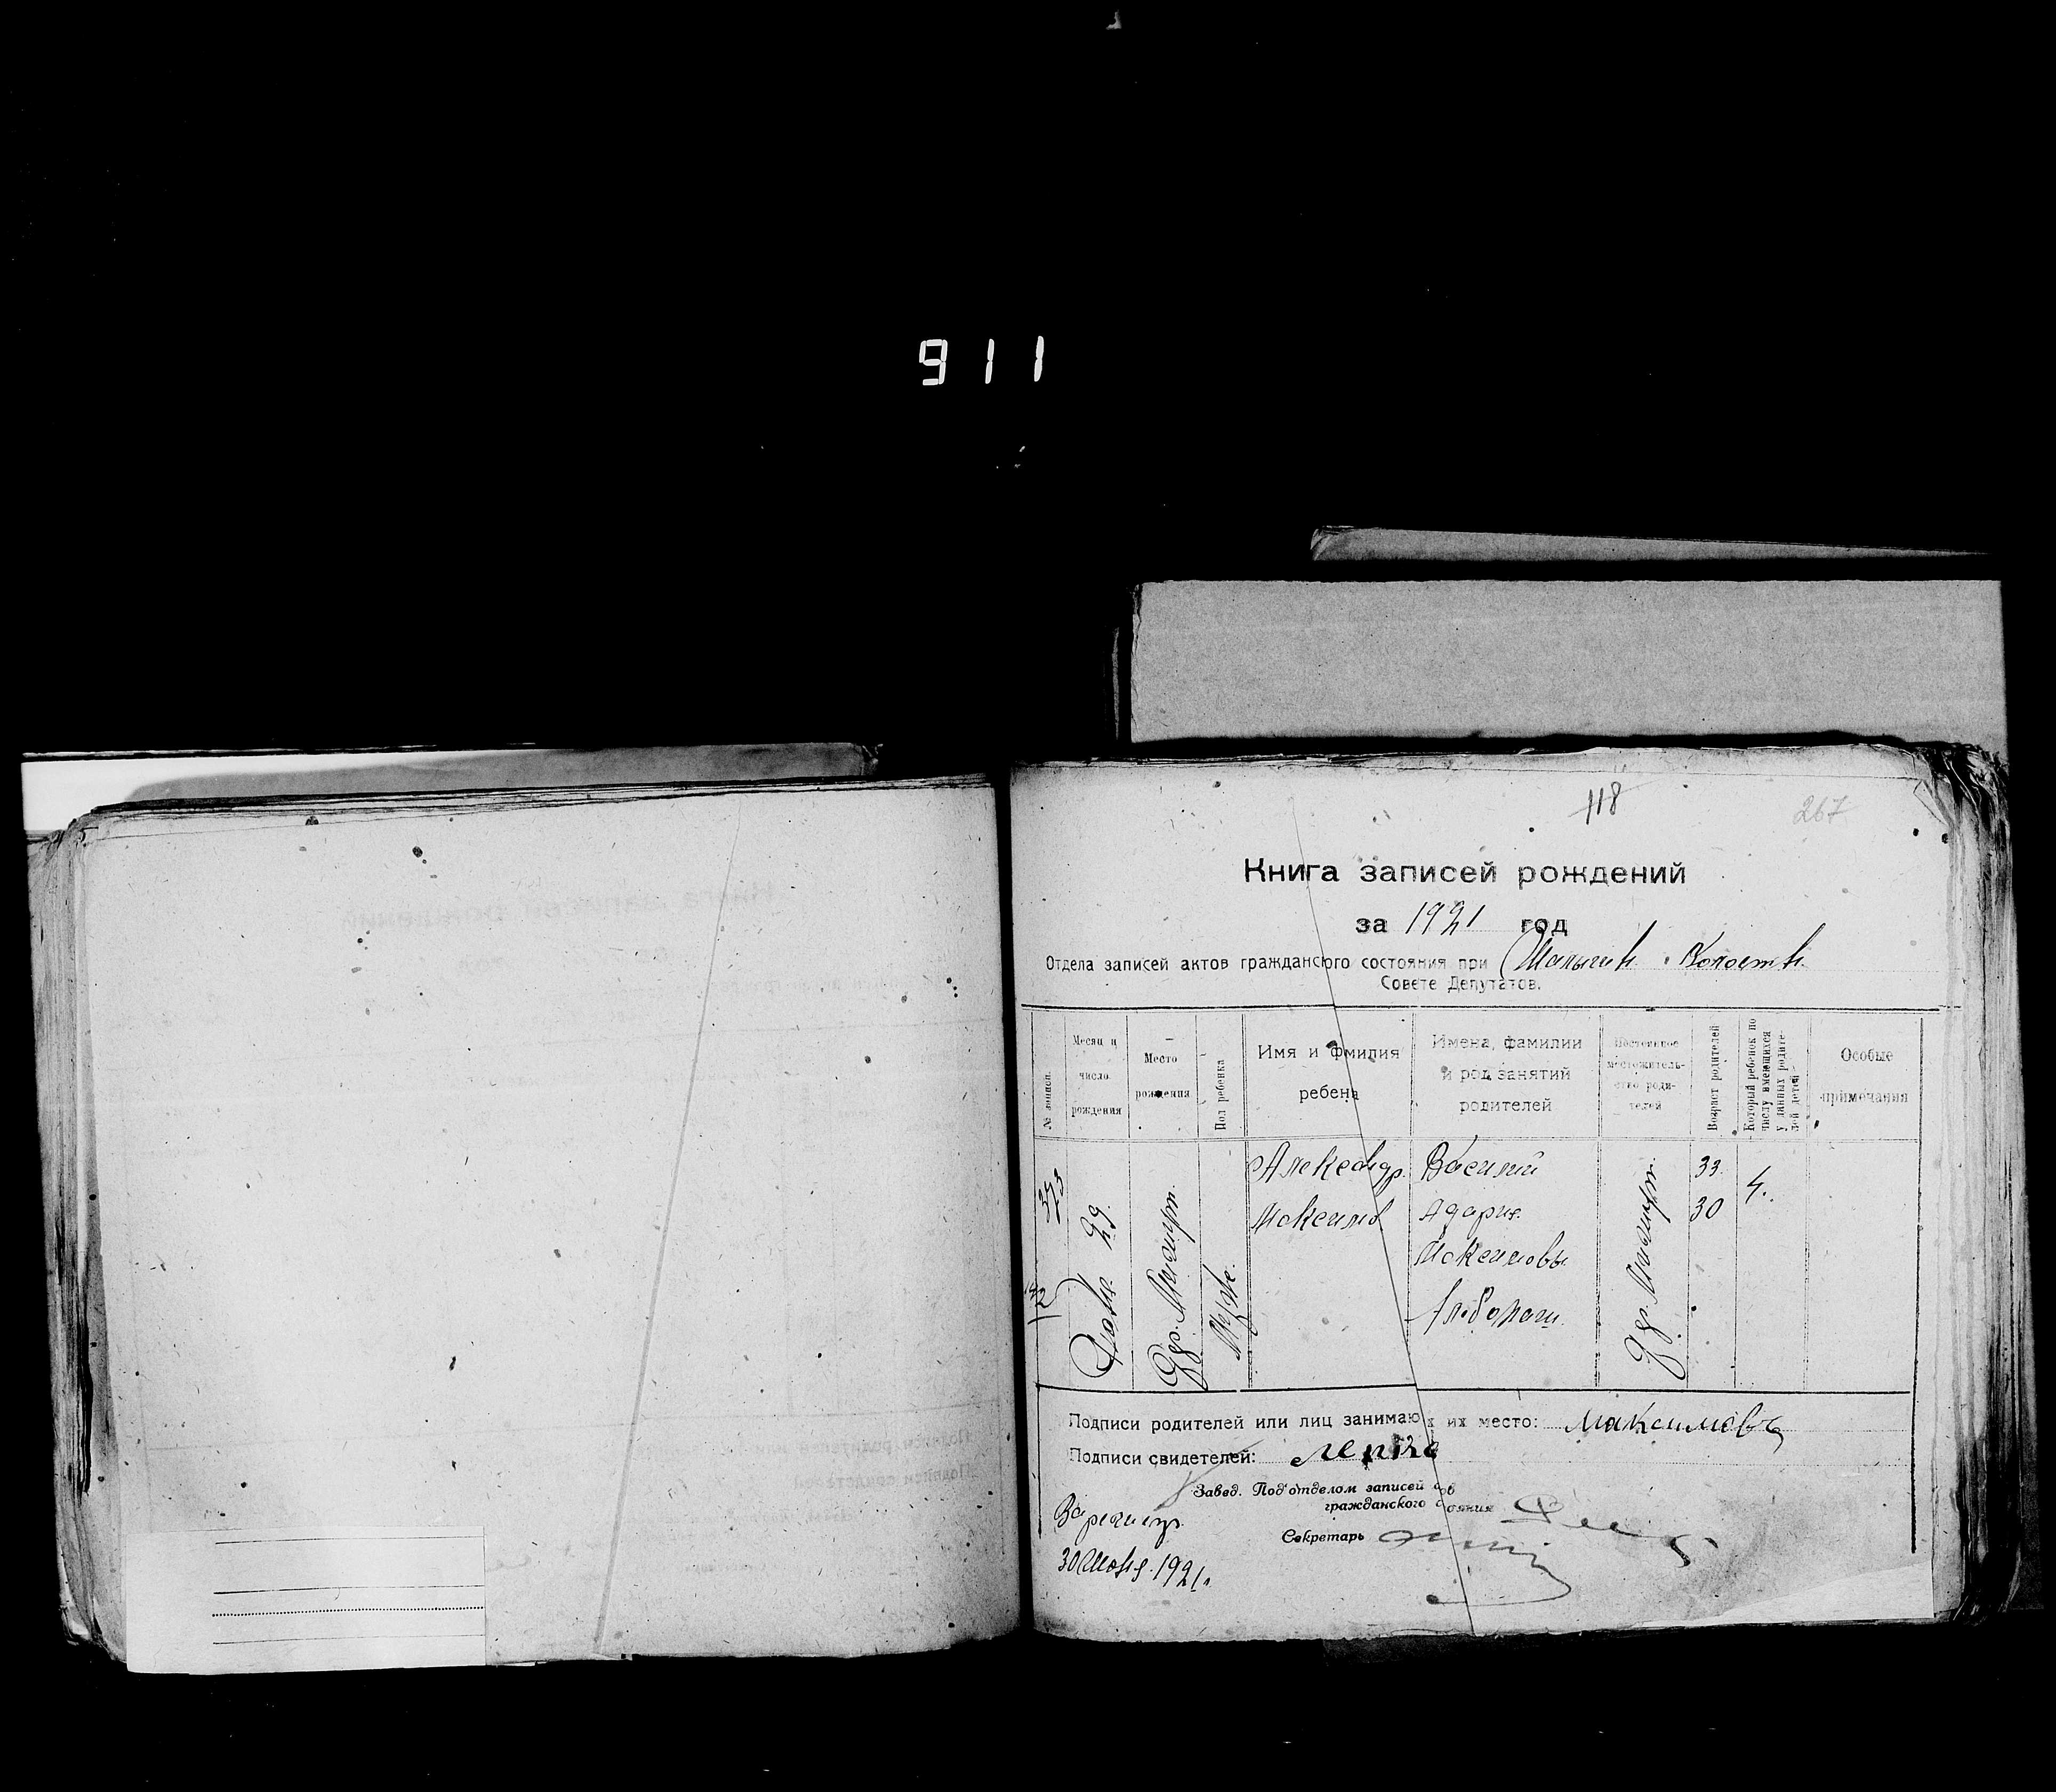 911
118
267
Книга записей рождений
за 1921 год
Отдела записей актов гражданского состояния при
Совете Депутатов.
№ записи.
Месяц и
число
рождения
Место
рождения
Пол ребенка
Имя и фмилия
ребен
Имена, фамилии
и род занятий
родителей
Постоянное
местожитель-
ство роди-
телей
Возраст родителей
Который ребенок по
числу имеющихся
у данных родите-
лей детей
Особые
примечания
29
Муж.
Александр.
Максимов
Василий
Дария
Максимовы
др.
33
30
4.
Подписи родителей или лиц занимаю их место: Максимовъ
Подписи свидетелей:
Завед. Под'отделом записей
гражданского
Секретарь
30 Июня 1921 г.